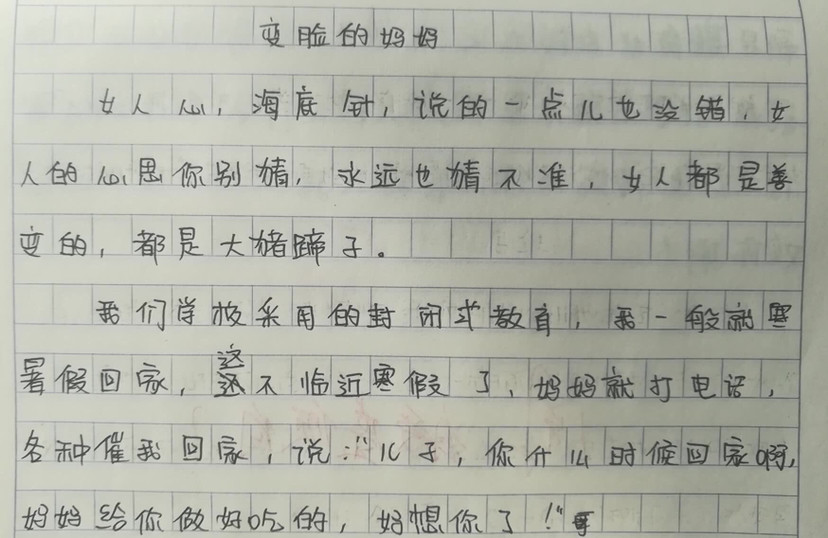 变脸的妈妈
女人心，海底针，说的一点儿也没错，女
人的心思你别猜，永远也猜不准，女人都是善
变的，都是大猪蹄子。
我们学校采用的封闭式教育，我一般就寒
暑假回家，这不临近寒假了，妈妈就打电话，
各种催我回家，说："儿子，你什么时候回家啊，
妈妈给你做好吃的，好想你了！"